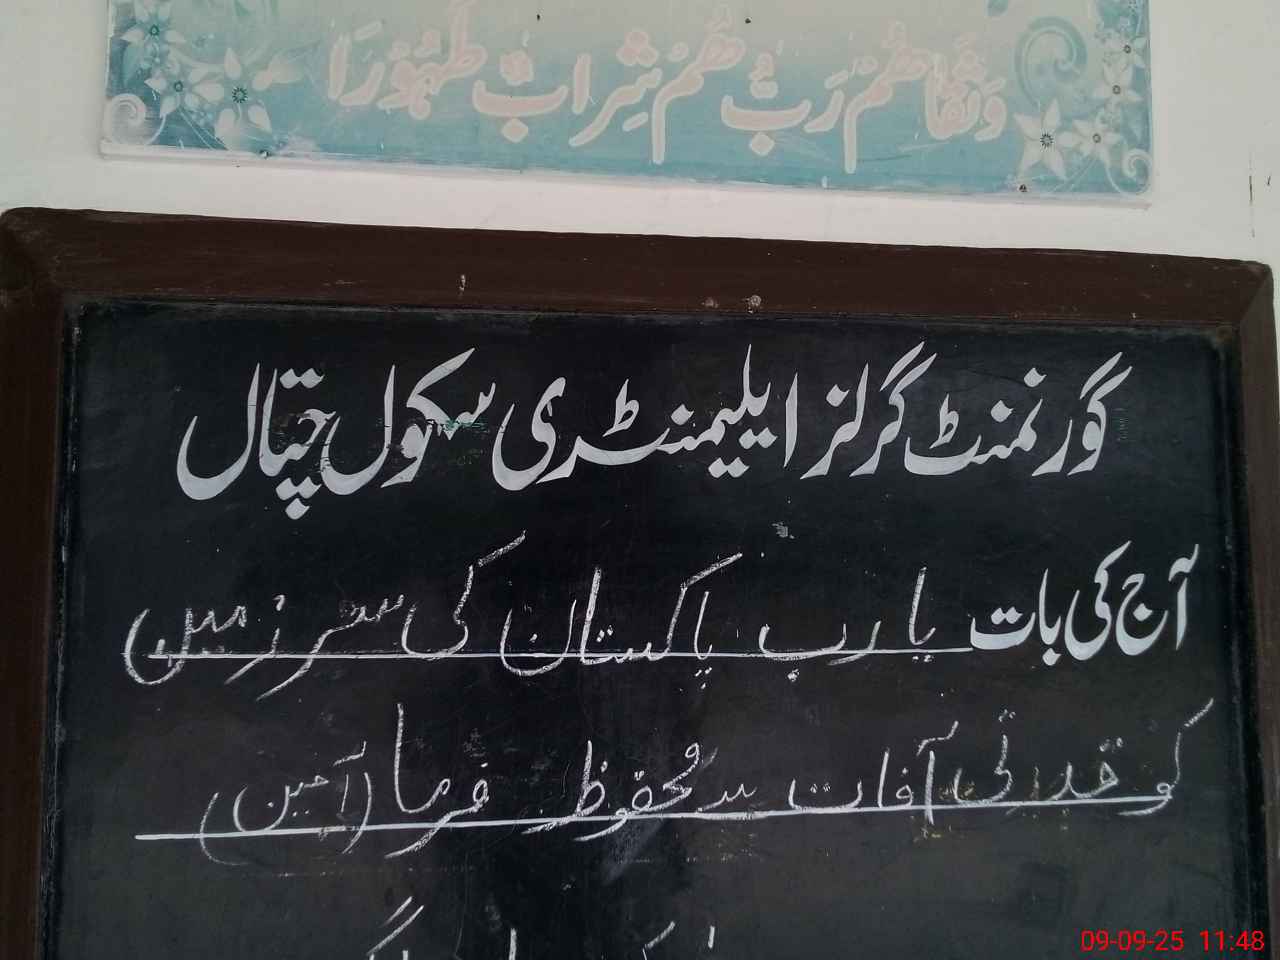 وَسَقَاهُمْ رَبُّهُمْ شَرَابًا طَهُوْرًا
گورنمنٹ گرلز ایلیمنٹری سکول چتال
آج کی بات یا رب پاکستان کی سرزمین
کو قدرتی آفات سے محفوظ فرما (آمین)
09-09-25 11:48